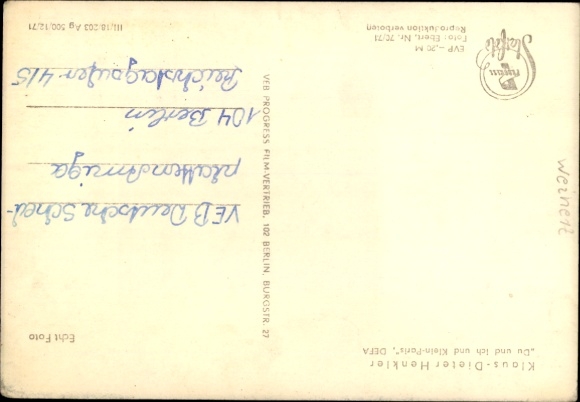 Klaus-Dieter Henkler
„Du und ich und Klein-Paris", DEFA
Echt Foto
VEB PROGRESS FILM-VERTRIEB, 102 BERLIN, BURGSTR. 27
VEB Deutsche Schal-
platten Amiga
104 Berlin
Reichstagsufer 4/5
Starfoto
EVP -,20 M
Foto: Ebert, Nr. 70/71
Reproduktion verboten
III/18/203 Ag 500/12/71